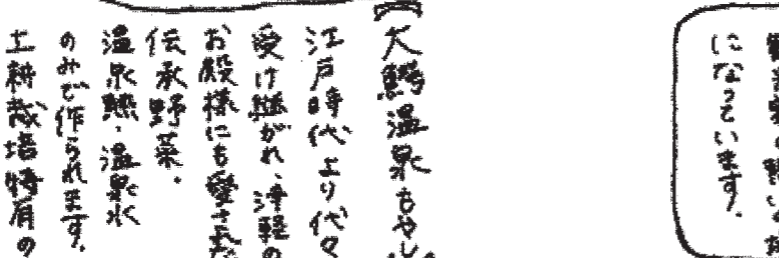 になっています。
【大鰐温泉もやし
江戸時代より代々
受け継がれ、津軽の
お殿様にも愛された
伝承野菜。
温泉熱・温泉水
のみで作られます。
土耕栽培特有の